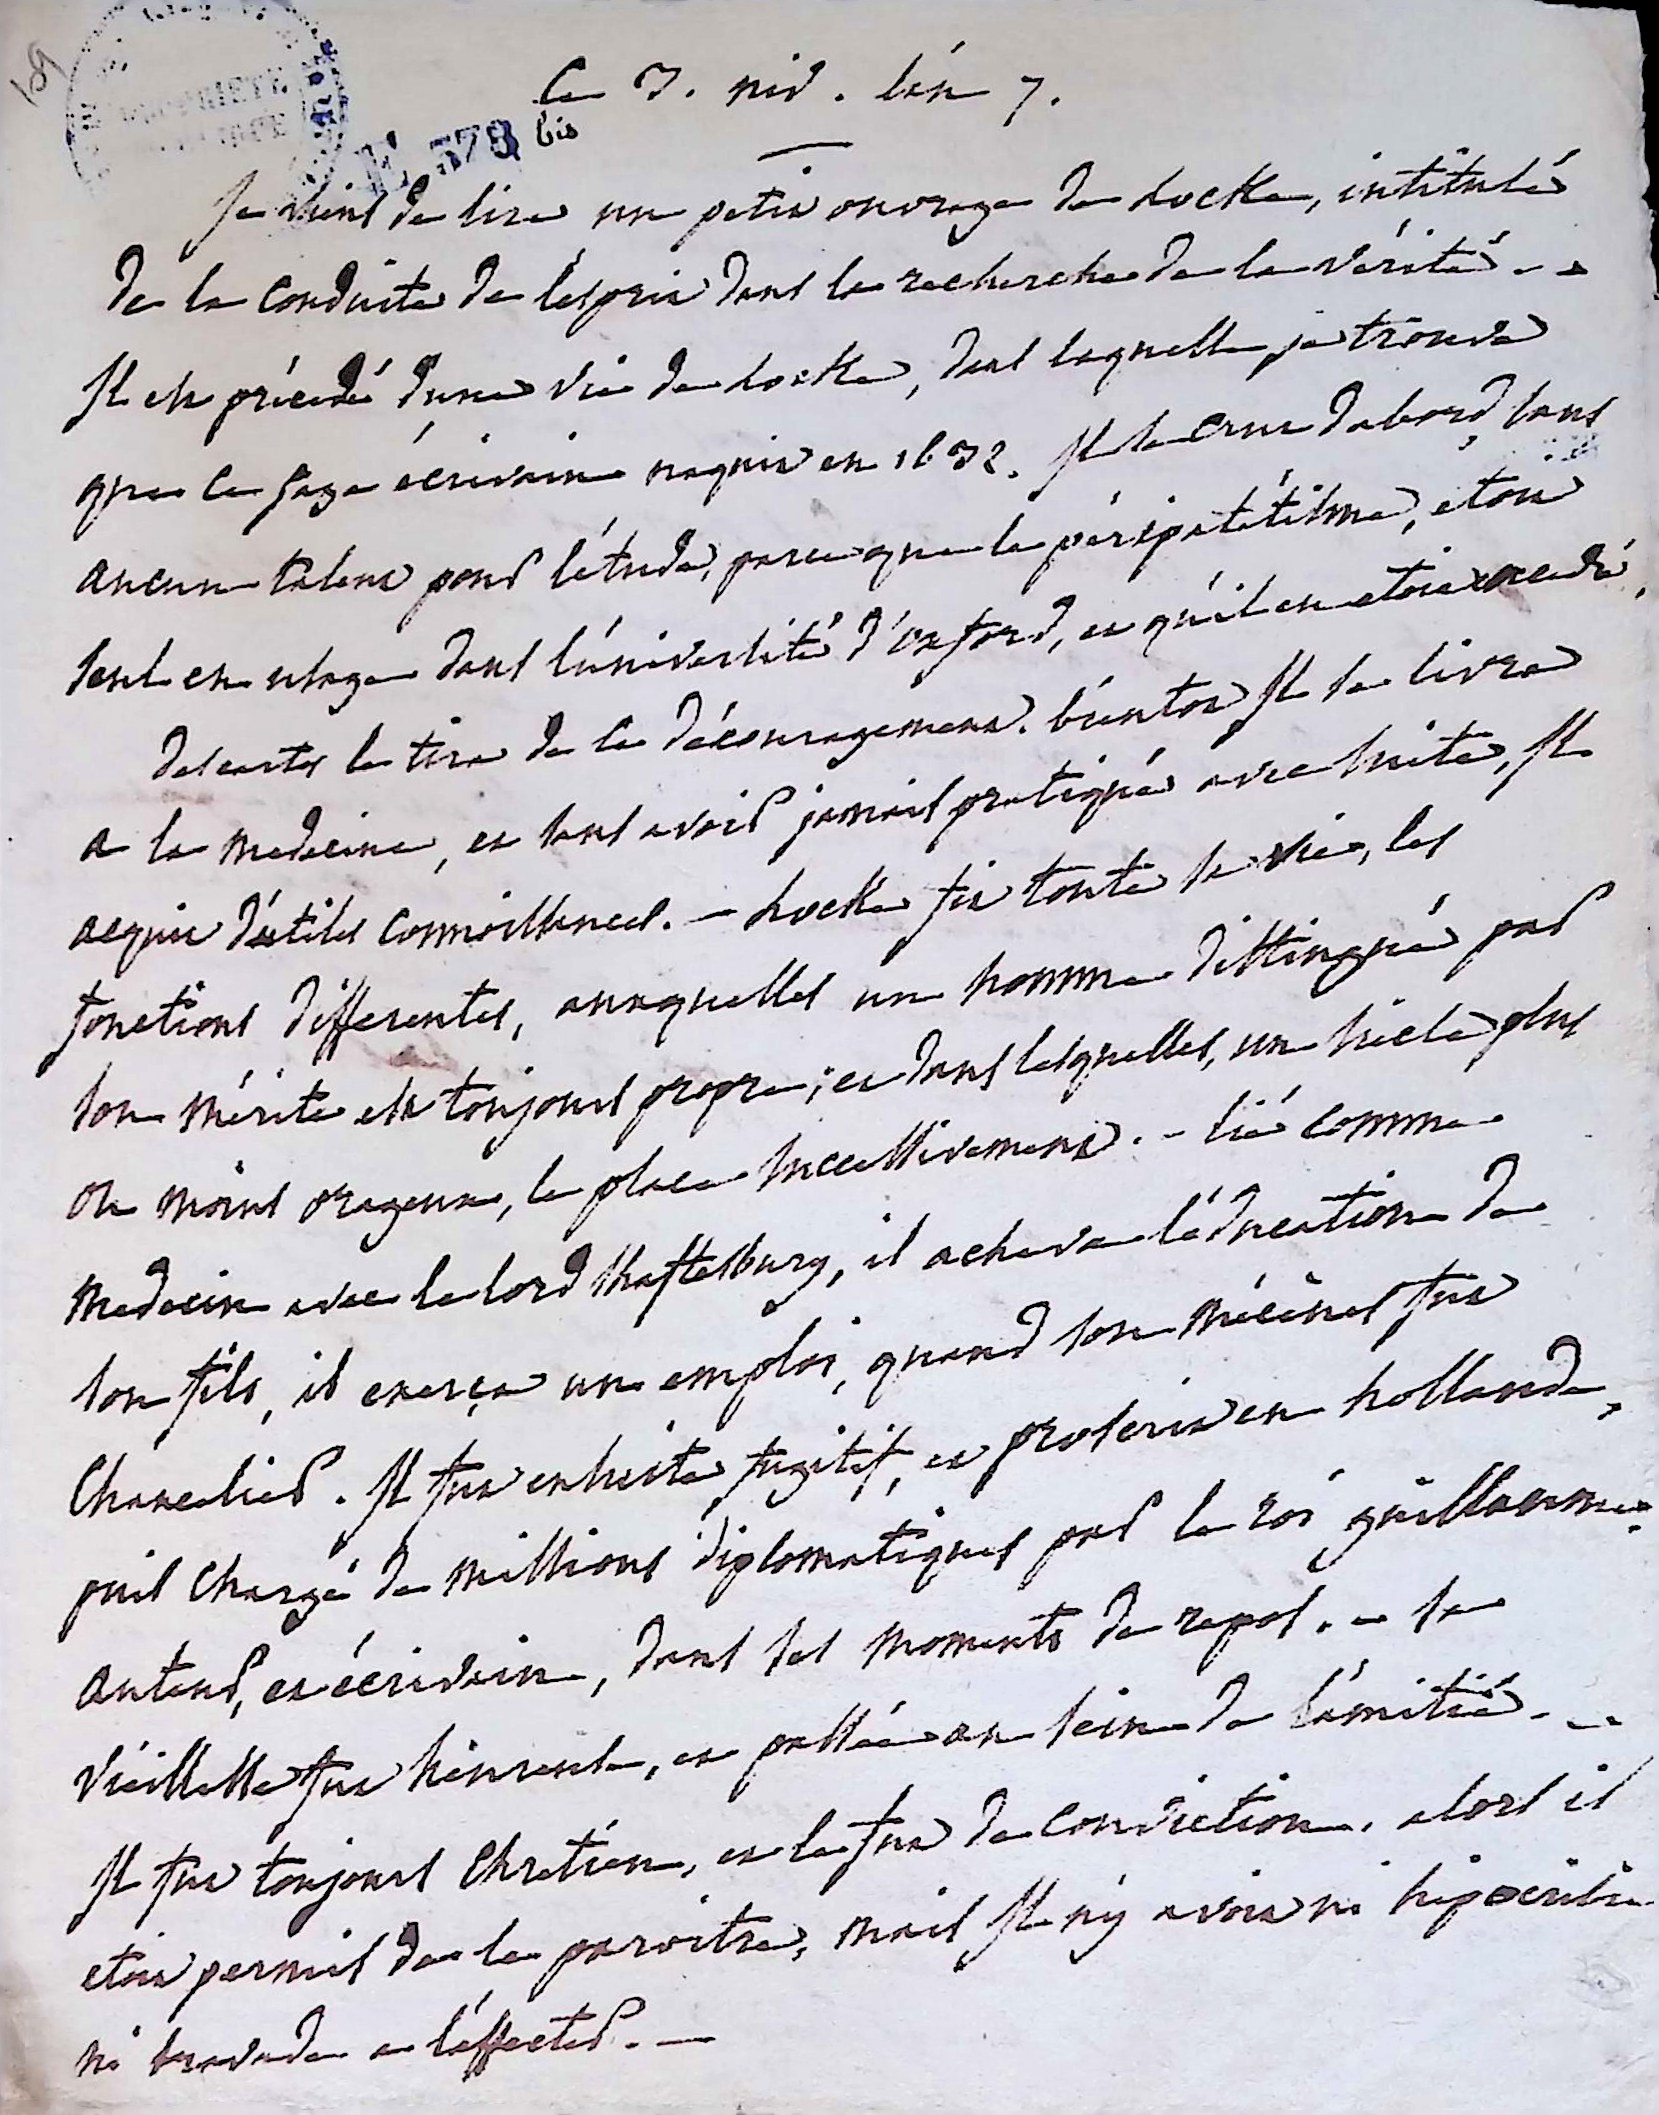 Ce 3. niv. l'an 7.
E 378 bis
Je viens de lire un petit ouvrage de Locke, intitulé
de la conduite de l'esprit dans la recherche de la vérité. -
Il est précédé d'une vie de Locke, dans laquelle je trouve
que ce sage écrivain naquit en 1632. Il se crut dabord sans
aucun talent pour l'étude, parce que le péripatétisme, étoit
seul en usage dans l'université d'oxford, et qu'il en etoit excedé.
descartes le tira de ce découragement. bientot Il se livra
a la medecine, et sans avoir jamais pratiqué avec suite, Il
acquit d'utiles connoissances. - Locke fit toute sa vie, les
fonctions differentes, auxquelles un homme distingué par
son mérite est toujours propre; et dans lesquelles, un siecle plus
ou moins orageux, le place successivement. - lié comme
medecin avec le lord shaftesbury, il acheva l'éducation de
son fils, il exerça un emploi, quand son mécènes fut
Chancelier. Il fut ensuite fugitif, et proscrit en hollande,
puis chargé de missions diplomatiques par le roi guillaume.
auteur, et écrivain, dans ses moments de repos. - sa
vieillesse fut heureuse, et passée au sein de l'amitié. -
Il fut toujours Chretien, et le fut de conviction. alors il
etoit permis de le paroitre, mais Il n'y avoit ni hipocrisie
ni bravade a l'affecter. -